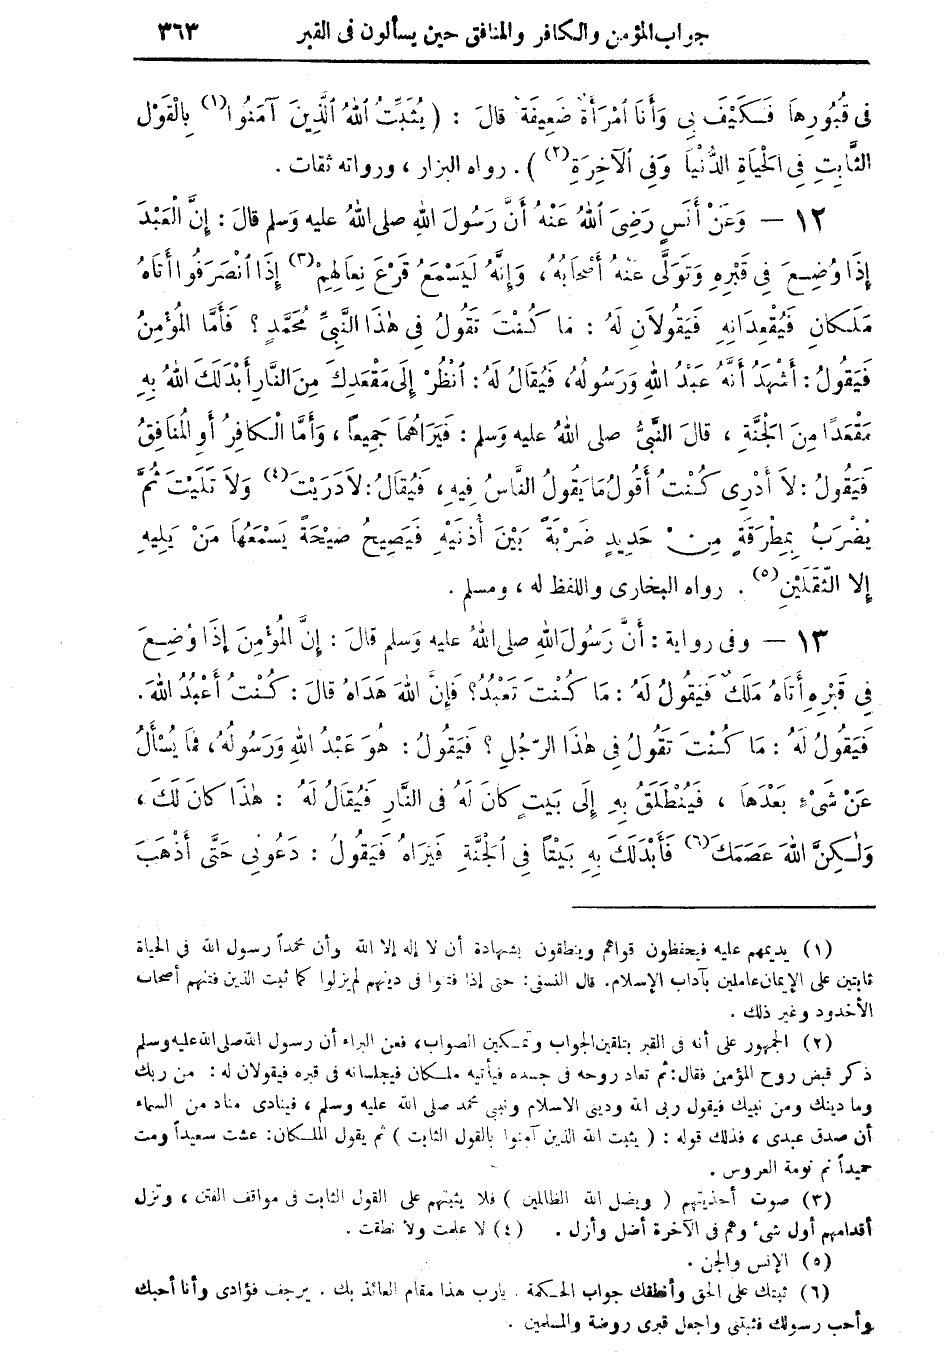 جواب المؤمن والكافر والمنافق حين يسألون فى القبر ٣٦٣
فِى قُبُورِهَا فَكَيْفَ بِى وَأَنَا امْرَأَةٌ ضَعِيفَةٌ قالَ : ( يُثَبِّتُ اللهُ الَّذِينَ آمَنُوا(١) بِالْقَوْلِ
الثَّابِتِ فِى الْحَيَاةِ الدُّنْيَا وَفِى الْآخِرَةِ(٢) ) . رواه البزار ، ورواته ثقات .
١٢ — وَعَنْ أَنَسٍ رَضِىَ اللهُ عَنْهُ أَنَّ رَسُولَ اللهِ صلى اللهُ عليه وَسلم قالَ : إِنَّ الْعَبْدَ
إِذَا وُضِعَ فِى قَبْرِهِ وَتَوَلَّى عَنْهُ أَصْحَابُهُ ، وَإِنَّهُ لَيَسْمَعُ قَرْعَ نِعَالِهِمْ(٣) إِذَا انْصَرَفُوا أَتَاهُ
مَلَكَانِ فَيُقْعِدَانِهِ فَيَقُولاَنِ لَهُ : مَا كُنْتَ تَقُولُ فِى هٰذَا النَّبِىِّ مُحَمَّدٍ ؟ فَأَمَّا الْمُؤْمِنُ
فَيَقُولُ : أَشْهَدُ أَنَّهُ عَبْدُ اللهِ وَرَسُولُهُ ، فَيُقَالُ لَهُ : انْظُرْ إِلَى مَقْعَدِكَ مِنَ النَّارِ أَبْدَلَكَ اللهُ بِهِ
مَقْعَدًا مِنَ الْجَنَّةِ ، قالَ النَّبِىُّ صلى اللهُ عليه وَسلم : فَيَرَاهُمَا جَمِيعاً ، وَأَمَّا الْكافِرُ أَوِ الْمُنَافِقُ
فَيَقُولُ : لاَ أَدْرِى كُنْتُ أَقُولُ مَا يَقُولُ النَّاسُ فِيهِ ، فَيُقَالُ : لاَ دَرَيْتَ(٤) وَلاَ تَلَيْتَ ثُمَّ
يُضْرَبُ بِمِطْرَقَةٍ مِنْ حَدِيدٍ ضَرْبَةً بَيْنَ أُذُنَيْهِ فَيَصِيحُ صَيْحَةً يَسْمَعُهَا مَنْ يَلِيهِ
إِلا الثَّقَلَيْنِ(٥) . رواه البخارى واللفظ له ، ومسلم .
١٣ — وفى رواية : أَنَّ رَسُولَ اللهِ صلى اللهُ عليه وَسلم قالَ : إِنَّ الْمُؤْمِنَ إِذَا وُضِعَ
فِى قَبْرِهِ أَتَاهُ مَلَكٌ فَيَقُولُ لَهُ : مَا كُنْتَ تَعْبُدُ ؟ فَإِنَّ اللهَ هَدَاهُ قالَ : كُنْتُ أَعْبُدُ اللهَ .
فَيَقُولُ لَهُ : مَا كُنْتَ تَقُولُ فِى هٰذَا الرَّجُلِ ؟ فَيَقُولُ : هُوَ عَبْدُ اللهِ وَرَسُولُهُ ، فَمَا يُسْأَلُ
عَنْ شَىْءٍ بَعْدَهَا ، فَيُنْطَلَقُ بِهِ إِلَى بَيْتٍ كانَ لَهُ فى النَّارِ فَيُقَالُ لَهُ : هٰذَا كانَ لَكَ ،
وَلٰكِنَّ اللهَ عَصَمَكَ(٦) فَأَبْدَلَكَ بِهِ بَيْتاً فِى الْجَنَّةِ فَيَرَاهُ فَيَقُولُ : دَعُونِى حَتَّى أَذْهَبَ
(١) يديمهم عليه فيحفظون قواهم وينطقون بشهادة أن لا إله إلا الله وأن محمداً رسول الله فى الحياة
ثابتين على الإيمان عاملين بآداب الإسلام. قال النسفى: حتى إذا فتنوا فى دينهم لم يزلوا كما ثبت الذين فتنهم أصحاب
الأخدود وغير ذلك .
(٢) الجمهور على أنه فى القبر بتلقين الجواب وتمكين الصواب، فعن البراء أن رسول الله صلى الله عليه وسلم
ذكر قبض روح المؤمن فقال: ثم تعاد روحه فى جسده فيأتيه ملكان فيجلسانه فى قبره فيقولان له : من ربك
وما دينك ومن نبيك فيقول ربى الله ودينى الاسلام ونبيى محمد صلى الله عليه وسلم ، فينادى مناد من السماء
أن صدق عبدى ، فذلك قوله : ( يثبت الله الذين آمنوا بالقول الثابت ) ثم يقول الملكان: عشت سعيداً ومت
حميداً نم نومة العروس .
(٣) صوت أحذيتهم ( ويضل الله الظالمين ) فلا يثبتهم على القول الثابت فى مواقف الفتن ، وتزل
أقدامهم أول شىء وهم فى الآخرة أضل وأزل . (٤) لا علمت ولا نطقت .
(٥) الإنس والجن .
(٦) ثبتك على الحق وأنطقك جواب الحكمة . يارب هذا مقام العائذ بك . يرجف فؤادى وأنا أحبك
وأحب رسولك فثبتنى واجعل قبرى روضة والمسلمين .